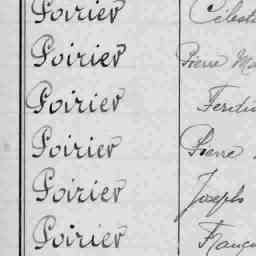 Poirier Céleste
Poirier Pierre Ma
Poirier Ferdi
Poirier Pierre
Poirier Joseph
Poirier Franç